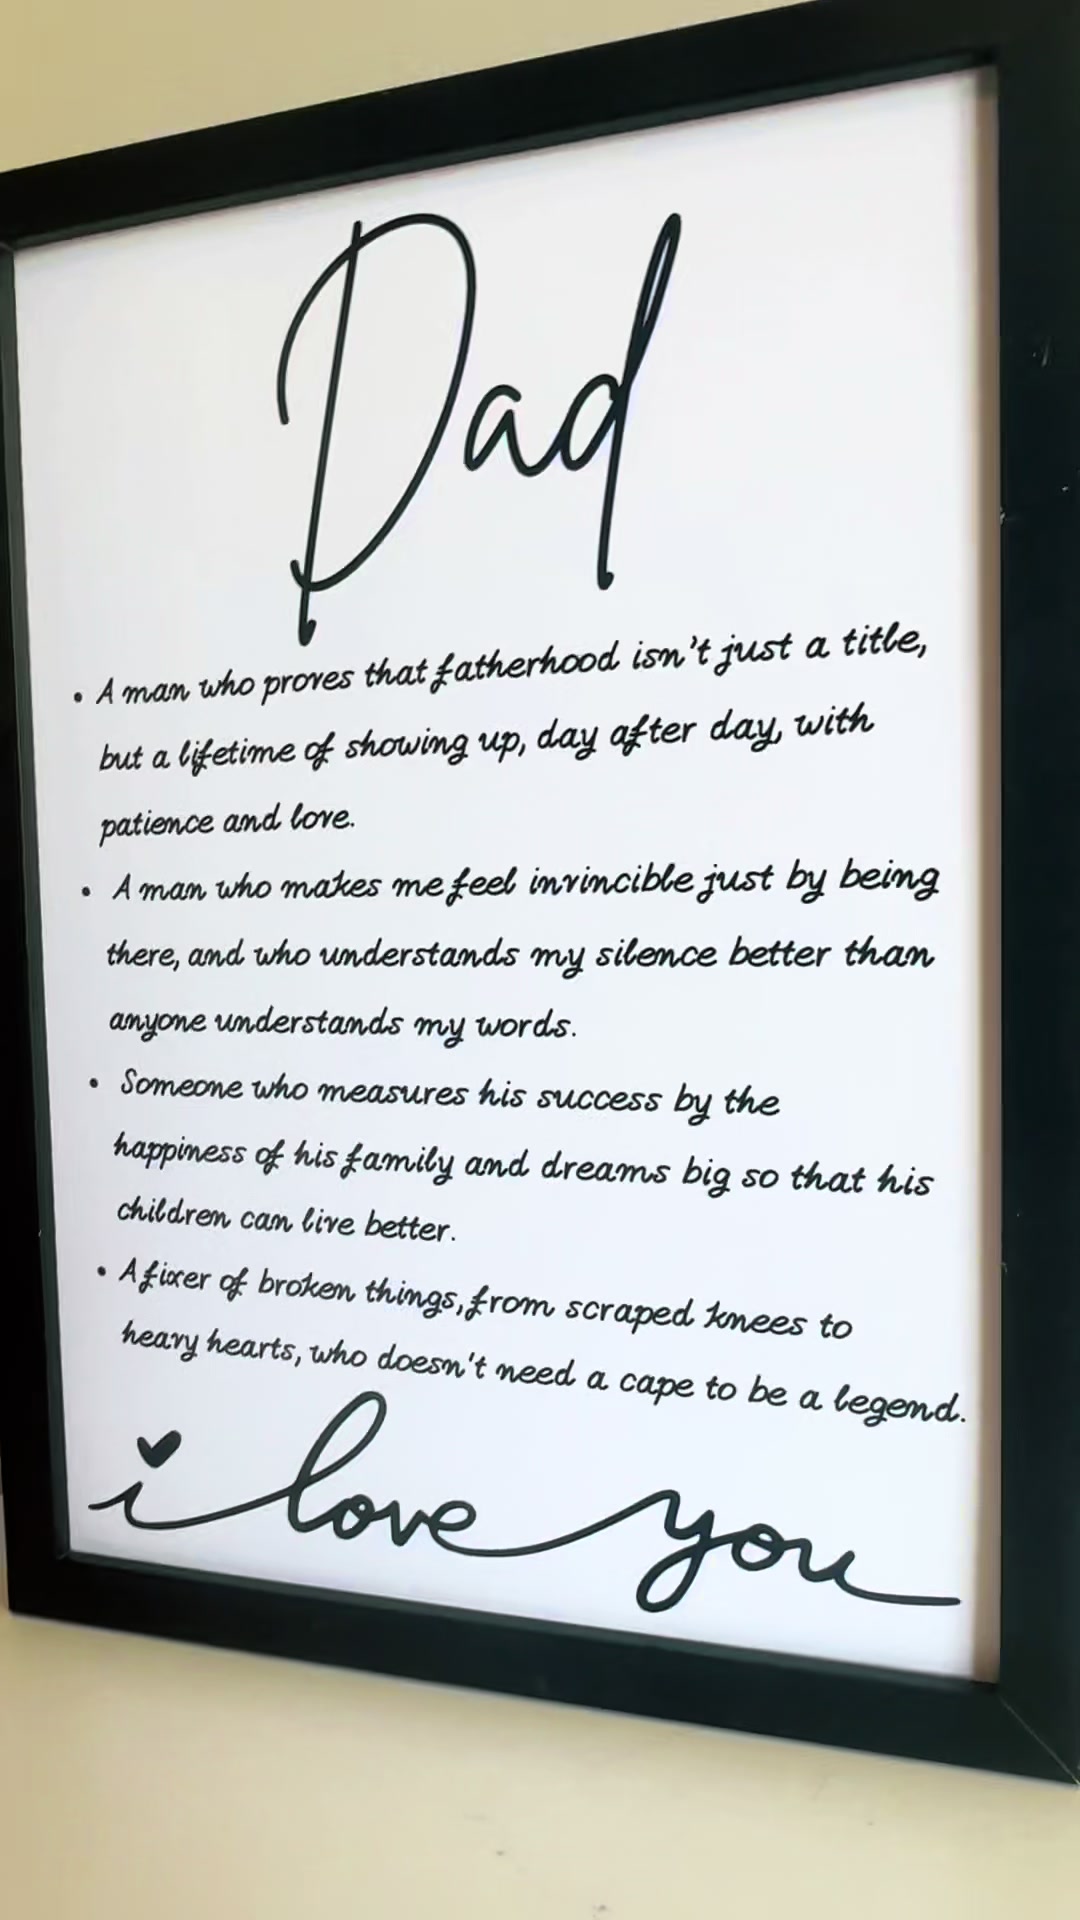 Dad
• A man who proves that fatherhood isn't just a title,
but a lifetime of showing up, day after day, with
patience and love.
• A man who makes me feel invincible just by being
there, and who understands my silence better than
anyone understands my words.
• Someone who measures his success by the
happiness of his family and dreams big so that his
children can live better.
• A fixer of broken things, from scraped knees to
heavy hearts, who doesn't need a cape to be a legend.
i love you